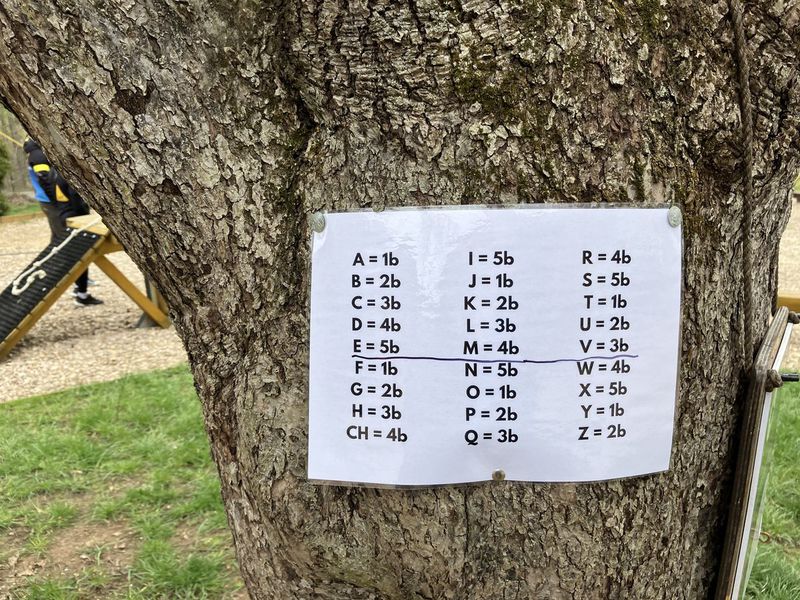 A = 1b
B = 2b
C = 3b
D = 4b
E = 5b
F = 1b
G = 2b
H = 3b
CH = 4b
I = 5b
J = 1b
K = 2b
L = 3b
M = 4b
N = 5b
O = 1b
P = 2b
Q = 3b
R = 4b
S = 5b
T = 1b
U = 2b
V = 3b
W = 4b
X = 5b
Y = 1b
Z = 2b